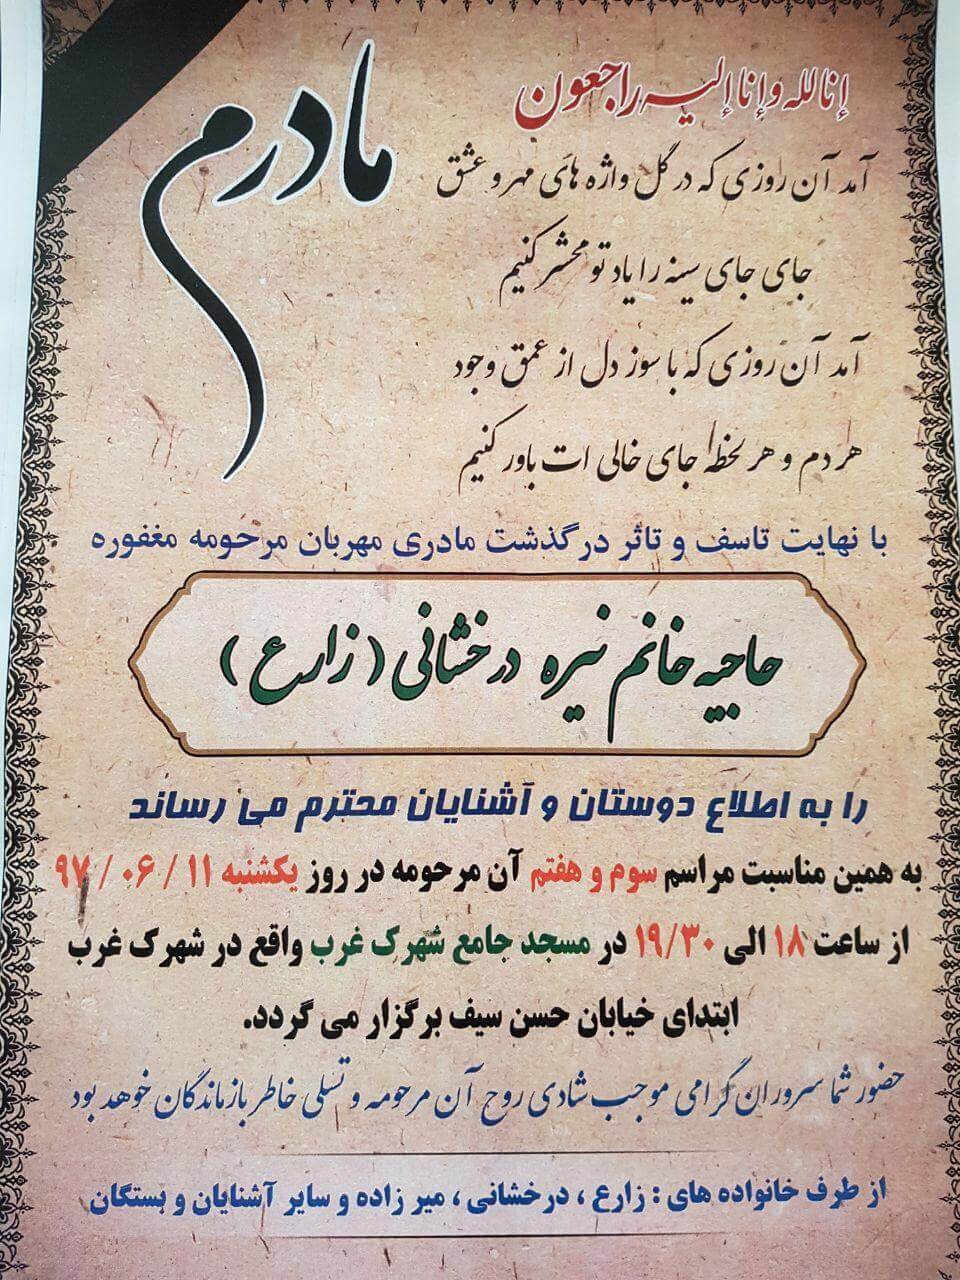 إنا لله وإنا إلیه راجعون
مادرم
آمد آن روزی که در گل واژه های مهر و عشق
جای جای سینه را یاد تو محشر کنیم
آمد آن روزی که با سوز دل از عمق وجود
هر دم و هر لحظه جای خالی ات باور کنیم
با نهایت تاسف و تاثر درگذشت مادری مهربان مرحومه مغفوره
حاجیه خانم نیره درخشانی (زارع)
را به اطلاع دوستان و آشنایان محترم می رساند
به همین مناسبت مراسم سوم و هفتم آن مرحومه در روز یکشنبه ۱۱ / ۰۶ / ۹۷
از ساعت ۱۸ الی ۱۹/۳۰ در مسجد جامع شهرک غرب واقع در شهرک غرب
ابتدای خیابان حسن سیف برگزار می گردد.
حضور شما سروران گرامی موجب شادی روح آن مرحومه و تسلی خاطر بازماندگان خواهد بود
از طرف خانواده های : زارع ، درخشانی ، میر زاده و سایر آشنایان و بستگان